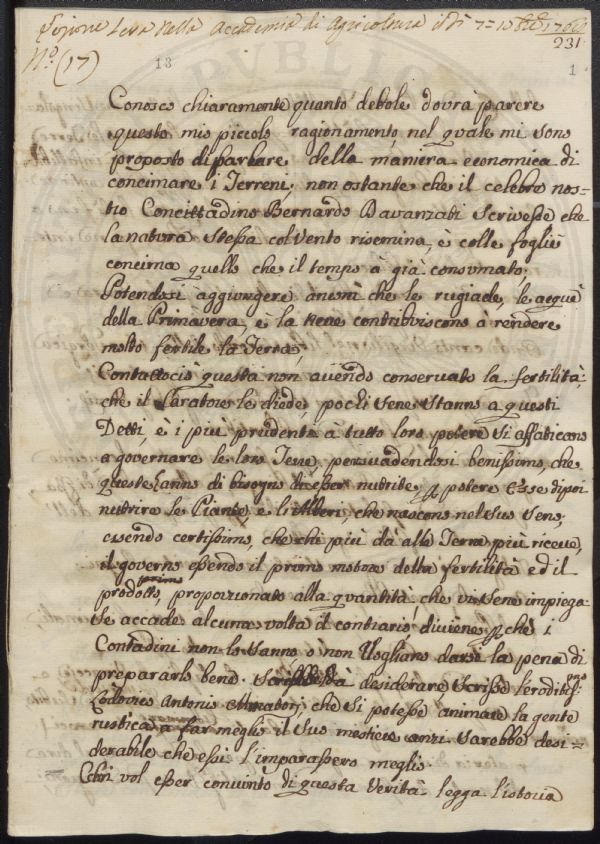 Lezione Letta Nella Accademia di Agricoltura il dì 7 = 1768
231
N.° (17)
13
1
Conosco chiaramente quanto debole dovrà parere
questo mio piccolo ragionamento, nel quale mi sono
proposto di parlare della maniera economica di
concimare i Terreni, non ostante che il celebre nos=
tro Concittadino Bernardo Davanzati Scrivesse che
la natura stessa col Vento risemina, è colle foglie
concima quello che il tempo à già consumato.
Potendosi aggiungere ancora che le rugiade, le acque
della Primavera, è la neve contribuiscono à rendere
molto fertile la Terra,
Contuttociò questa non avendo conservato la fertilità,
che il Creatore le diede, pochi sene stanno a questi
Detti, e i piu prudenti à tutto loro potere si affaticano
a governare le loro Terre, persuadendosi benissimo, che
queste hanno di bisogno di esser nutrite p potere Esse di poi
nutrire le Piante, e li Alberi, che nascono nel suo seno,
essendo certissimo, che chi più dà alla Terra più riceve,
il governo essendo il primo motore della fertilità ed il
prodotto, proporzionato alla quantità, che vi sene impiega
Se accade alcuna volta il contrario, diviene p chè i
Contadini non lo sanno o non Vogliano darsi la pena di
prepararlo bene. desiderare Scrisse l'eroditissimo
Lodovico Antonio Muratori, che si potesse animare la gente
rustica a far meglio il suo mestiere anzi sarebbe desi=
derabile che essi l'imparassero meglio.
Chi vol esser convinto di questa Verità legga l'istoria